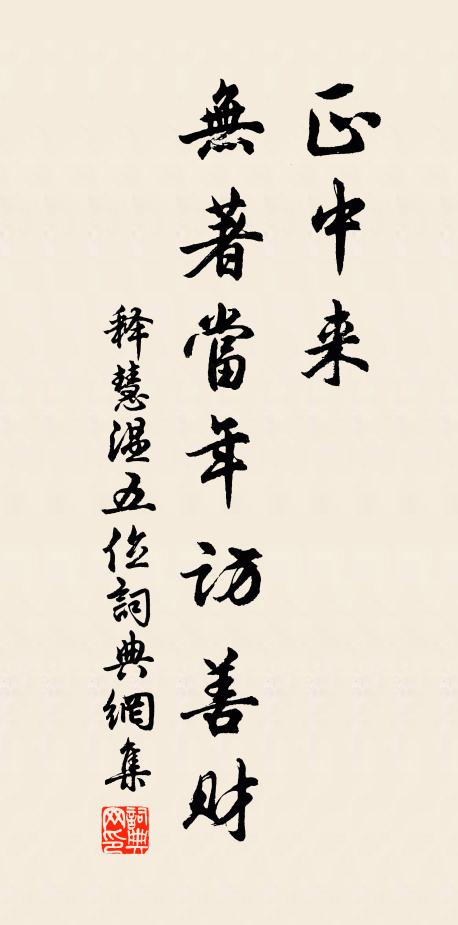 正中来
無著當年訪善財
释慧温五位詞典網集
詞典网印